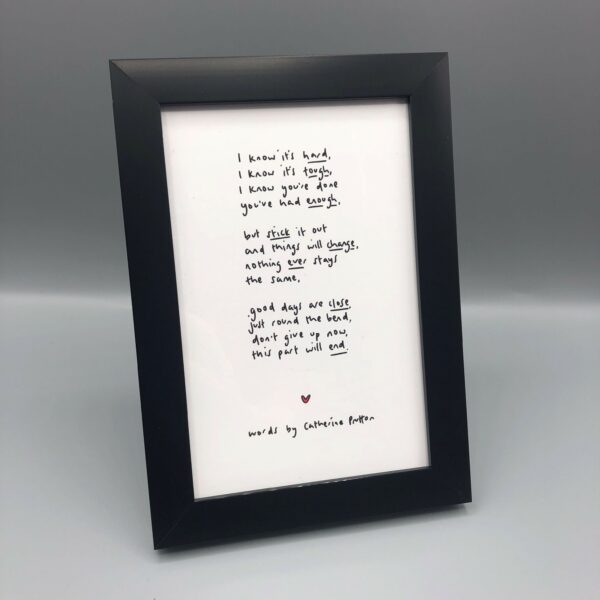 I know it's hard,
I know it's tough,
I know you're done
you've had enough,
but stick it out
and things will change,
nothing ever stays
the same,
good days are close
just round the bend,
don't give up now,
this part will end.
words by Catherine Prutton